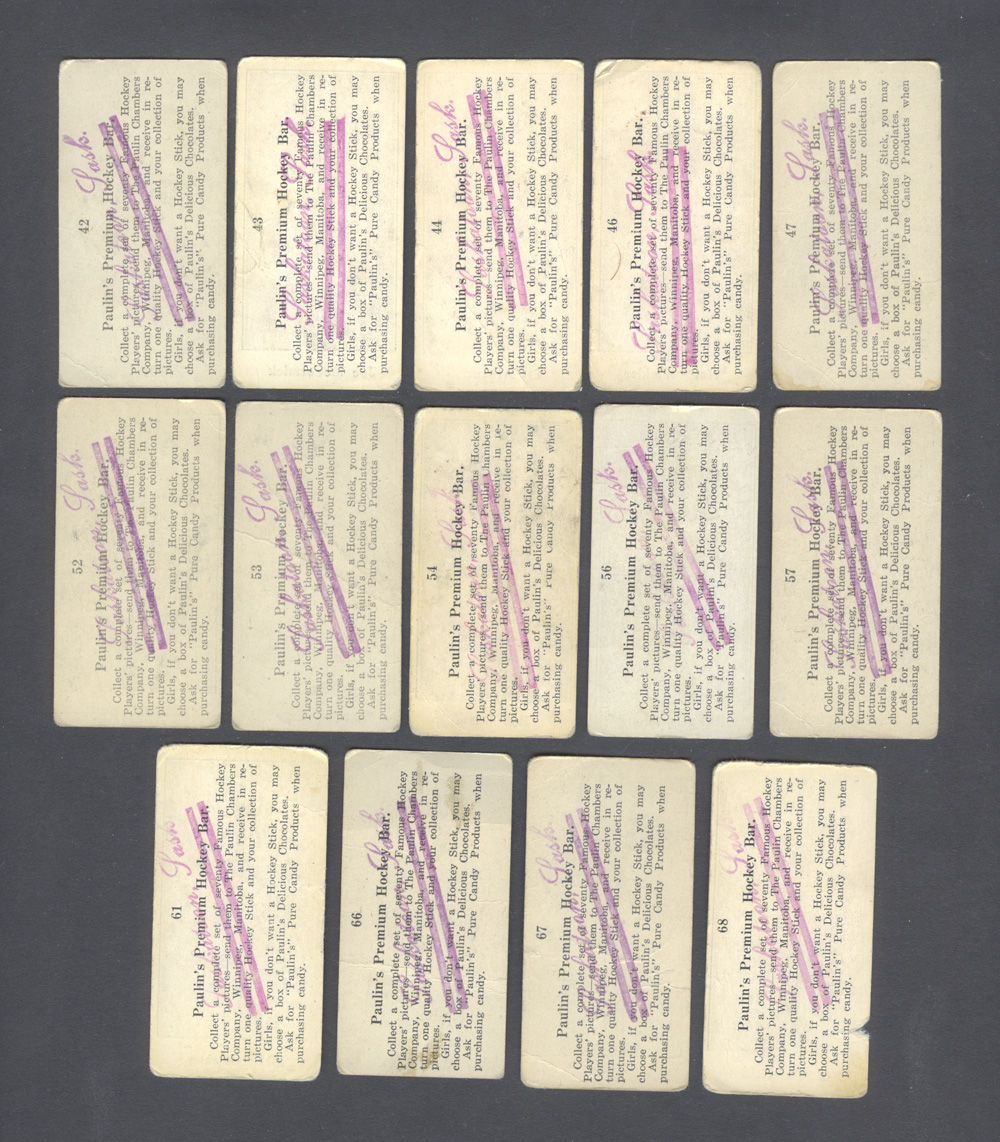 42
Sask.
Paulin's Premium Hockey Bar.
Collect a complete set of seventy Famous Hockey
Players' pictures—send them to The Paulin Chambers
Company, Winnipeg, Manitoba, and receive in re-
turn one quality Hockey Stick and your collection of
pictures.
Girls, if you don't want a Hockey Stick, you may
choose a box of Paulin's Delicious Chocolates.
Ask for "Paulin's" Pure Candy Products when
purchasing candy.
43
Paulin's Premium Hockey Bar.
Collect a complete set of seventy Famous Hockey
Players' pictures—send them to The Paulin Chambers
Company, Winnipeg, Manitoba, and receive in re-
turn one quality Hockey Stick and your collection of
pictures.
Girls, if you don't want a Hockey Stick, you may
choose a box of Paulin's Delicious Chocolates.
Ask for "Paulin's" Pure Candy Products when
purchasing candy.
44
Sask.
Paulin's Premium Hockey Bar.
Collect a complete set of seventy Famous Hockey
Players' pictures—send them to The Paulin Chambers
Company, Winnipeg, Manitoba, and receive in re-
turn one quality Hockey Stick and your collection of
pictures.
Girls, if you don't want a Hockey Stick, you may
choose a box of Paulin's Delicious Chocolates.
Ask for "Paulin's" Pure Candy Products when
purchasing candy.
46
Paulin's Premium Hockey Bar.
Collect a complete set of seventy Famous Hockey
Players' pictures—send them to The Paulin Chambers
Company, Winnipeg, Manitoba, and receive in re-
turn one quality Hockey Stick and your collection of
pictures.
Girls, if you don't want a Hockey Stick, you may
choose a box of Paulin's Delicious Chocolates.
Ask for "Paulin's" Pure Candy Products when
purchasing candy.
47
Sask.
Paulin's Premium Hockey Bar.
Collect a complete set of seventy Famous Hockey
Players' pictures—send them to The Paulin Chambers
Company, Winnipeg, Manitoba, and receive in re-
turn one quality Hockey Stick and your collection of
pictures.
Girls, if you don't want a Hockey Stick, you may
choose a box of Paulin's Delicious Chocolates.
Ask for "Paulin's" Pure Candy Products when
purchasing candy.
52
Sask.
Paulin's Premium Hockey Bar.
Collect a complete set of seventy Famous Hockey
Players' pictures—send them to The Paulin Chambers
Company, Winnipeg, Manitoba, and receive in re-
turn one quality Hockey Stick and your collection of
pictures.
Girls, if you don't want a Hockey Stick, you may
choose a box of Paulin's Delicious Chocolates.
Ask for "Paulin's" Pure Candy Products when
purchasing candy.
53
Sask.
Paulin's Premium Hockey Bar.
Collect a complete set of seventy Famous Hockey
Players' pictures—send them to The Paulin Chambers
Company, Winnipeg, Manitoba, and receive in re-
turn one quality Hockey Stick and your collection of
pictures.
Girls, if you don't want a Hockey Stick, you may
choose a box of Paulin's Delicious Chocolates.
Ask for "Paulin's" Pure Candy Products when
purchasing candy.
54
Paulin's Premium Hockey Bar.
Collect a complete set of seventy Famous Hockey
Players' pictures—send them to The Paulin Chambers
Company, Winnipeg, Manitoba, and receive in re-
turn one quality Hockey Stick and your collection of
pictures.
Girls, if you don't want a Hockey Stick, you may
choose a box of Paulin's Delicious Chocolates.
Ask for "Paulin's" Pure Candy Products when
purchasing candy.
56
Sask.
Paulin's Premium Hockey Bar.
Collect a complete set of seventy Famous Hockey
Players' pictures—send them to The Paulin Chambers
Company, Winnipeg, Manitoba, and receive in re-
turn one quality Hockey Stick and your collection of
pictures.
Girls, if you don't want a Hockey Stick, you may
choose a box of Paulin's Delicious Chocolates.
Ask for "Paulin's" Pure Candy Products when
purchasing candy.
57
Paulin's Premium Hockey Bar.
Collect a complete set of seventy Famous Hockey
Players' pictures—send them to The Paulin Chambers
Company, Winnipeg, Manitoba, and receive in re-
turn one quality Hockey Stick and your collection of
pictures.
Girls, if you don't want a Hockey Stick, you may
choose a box of Paulin's Delicious Chocolates.
Ask for "Paulin's" Pure Candy Products when
purchasing candy.
61
Sask.
Paulin's Premium Hockey Bar.
Collect a complete set of seventy Famous Hockey
Players' pictures—send them to The Paulin Chambers
Company, Winnipeg, Manitoba, and receive in re-
turn one quality Hockey Stick and your collection of
pictures.
Girls, if you don't want a Hockey Stick, you may
choose a box of Paulin's Delicious Chocolates.
Ask for "Paulin's" Pure Candy Products when
purchasing candy.
66
Paulin's Premium Hockey Bar.
Collect a complete set of seventy Famous Hockey
Players' pictures—send them to The Paulin Chambers
Company, Winnipeg, Manitoba, and receive in re-
turn one quality Hockey Stick and your collection of
pictures.
Girls, if you don't want a Hockey Stick, you may
choose a box of Paulin's Delicious Chocolates.
Ask for "Paulin's" Pure Candy Products when
purchasing candy.
67
Sask.
Paulin's Premium Hockey Bar.
Collect a complete set of seventy Famous Hockey
Players' pictures—send them to The Paulin Chambers
Company, Winnipeg, Manitoba, and receive in re-
turn one quality Hockey Stick and your collection of
pictures.
Girls, if you don't want a Hockey Stick, you may
choose a box of Paulin's Delicious Chocolates.
Ask for "Paulin's" Pure Candy Products when
purchasing candy.
68
Paulin's Premium Hockey Bar.
Collect a complete set of seventy Famous Hockey
Players' pictures—send them to The Paulin Chambers
Company, Winnipeg, Manitoba, and receive in re-
turn one quality Hockey Stick and your collection of
pictures.
Girls, if you don't want a Hockey Stick, you may
choose a box of Paulin's Delicious Chocolates.
Ask for "Paulin's" Pure Candy Products when
purchasing candy.